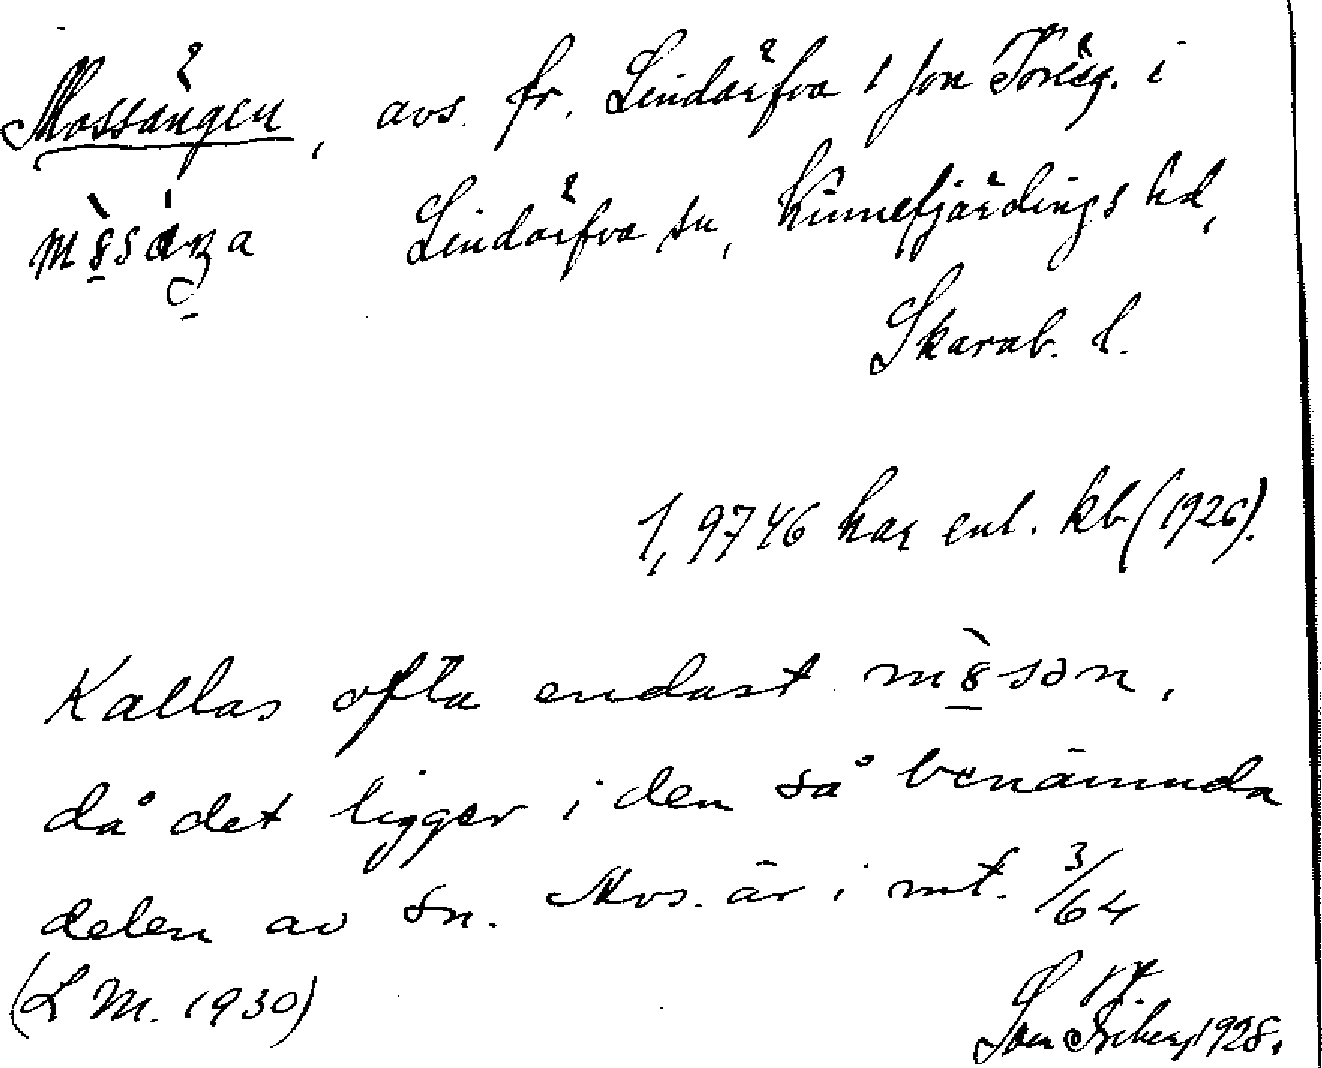 Mossängen, avs. fr. Lindärfva 1 från Toreg. i
Lindärfva sn, Kinnefjärdings hd,
Skarab. l.
1,9746 har enl. kb (1926).
Kallas ofta endast
då det ligger i den så benämnda
delen av sn. Mos. är i mt. 3/64
(L M. 1930)
Friberg 1928.